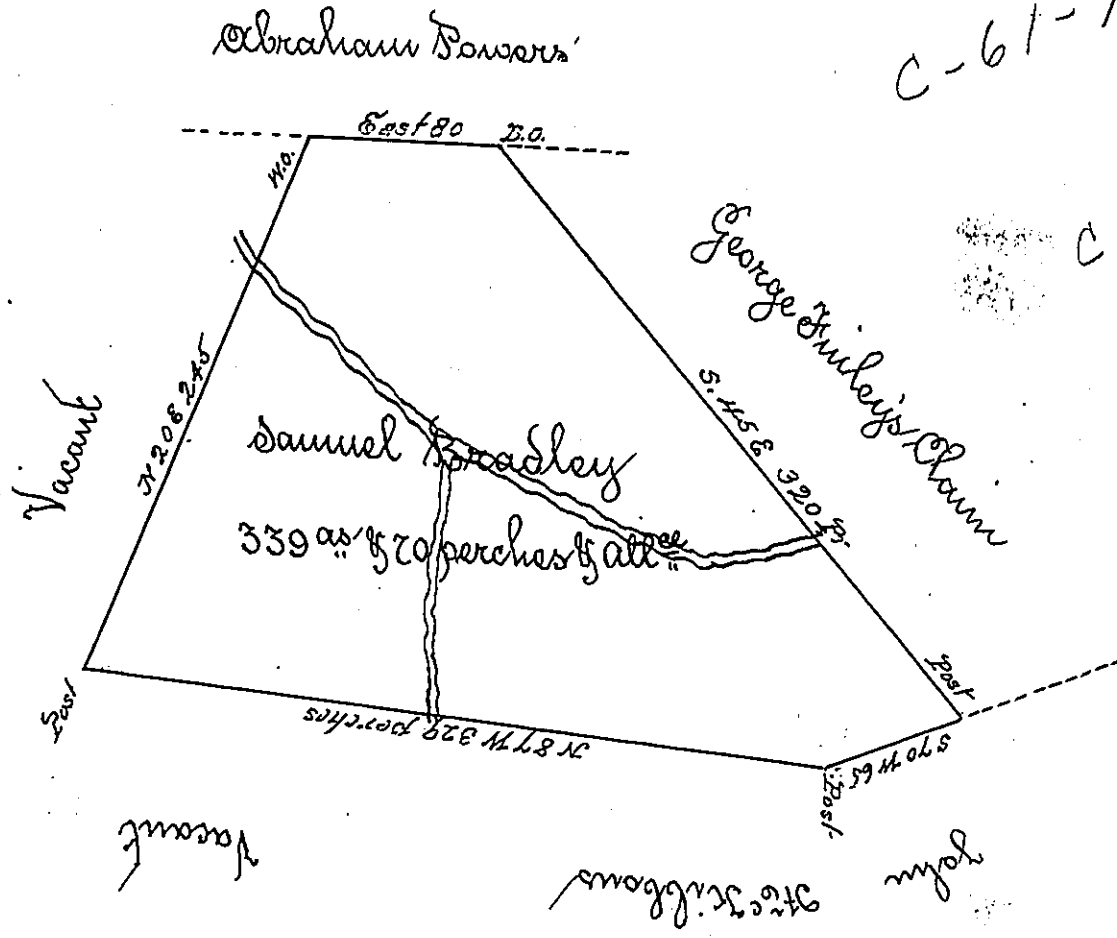 Abraham Powers'
C-61-
East 80
B.O.
W.O.
George Finley's Claim
C
N 20 E 245
S. 45 E 320 ps.
Vacant
Samuel Bradley
339 as & 70 perches & allce
Post
Post
N 87 W 329 perches
S 70 W 65
Post
Vacant
John
McKibbons